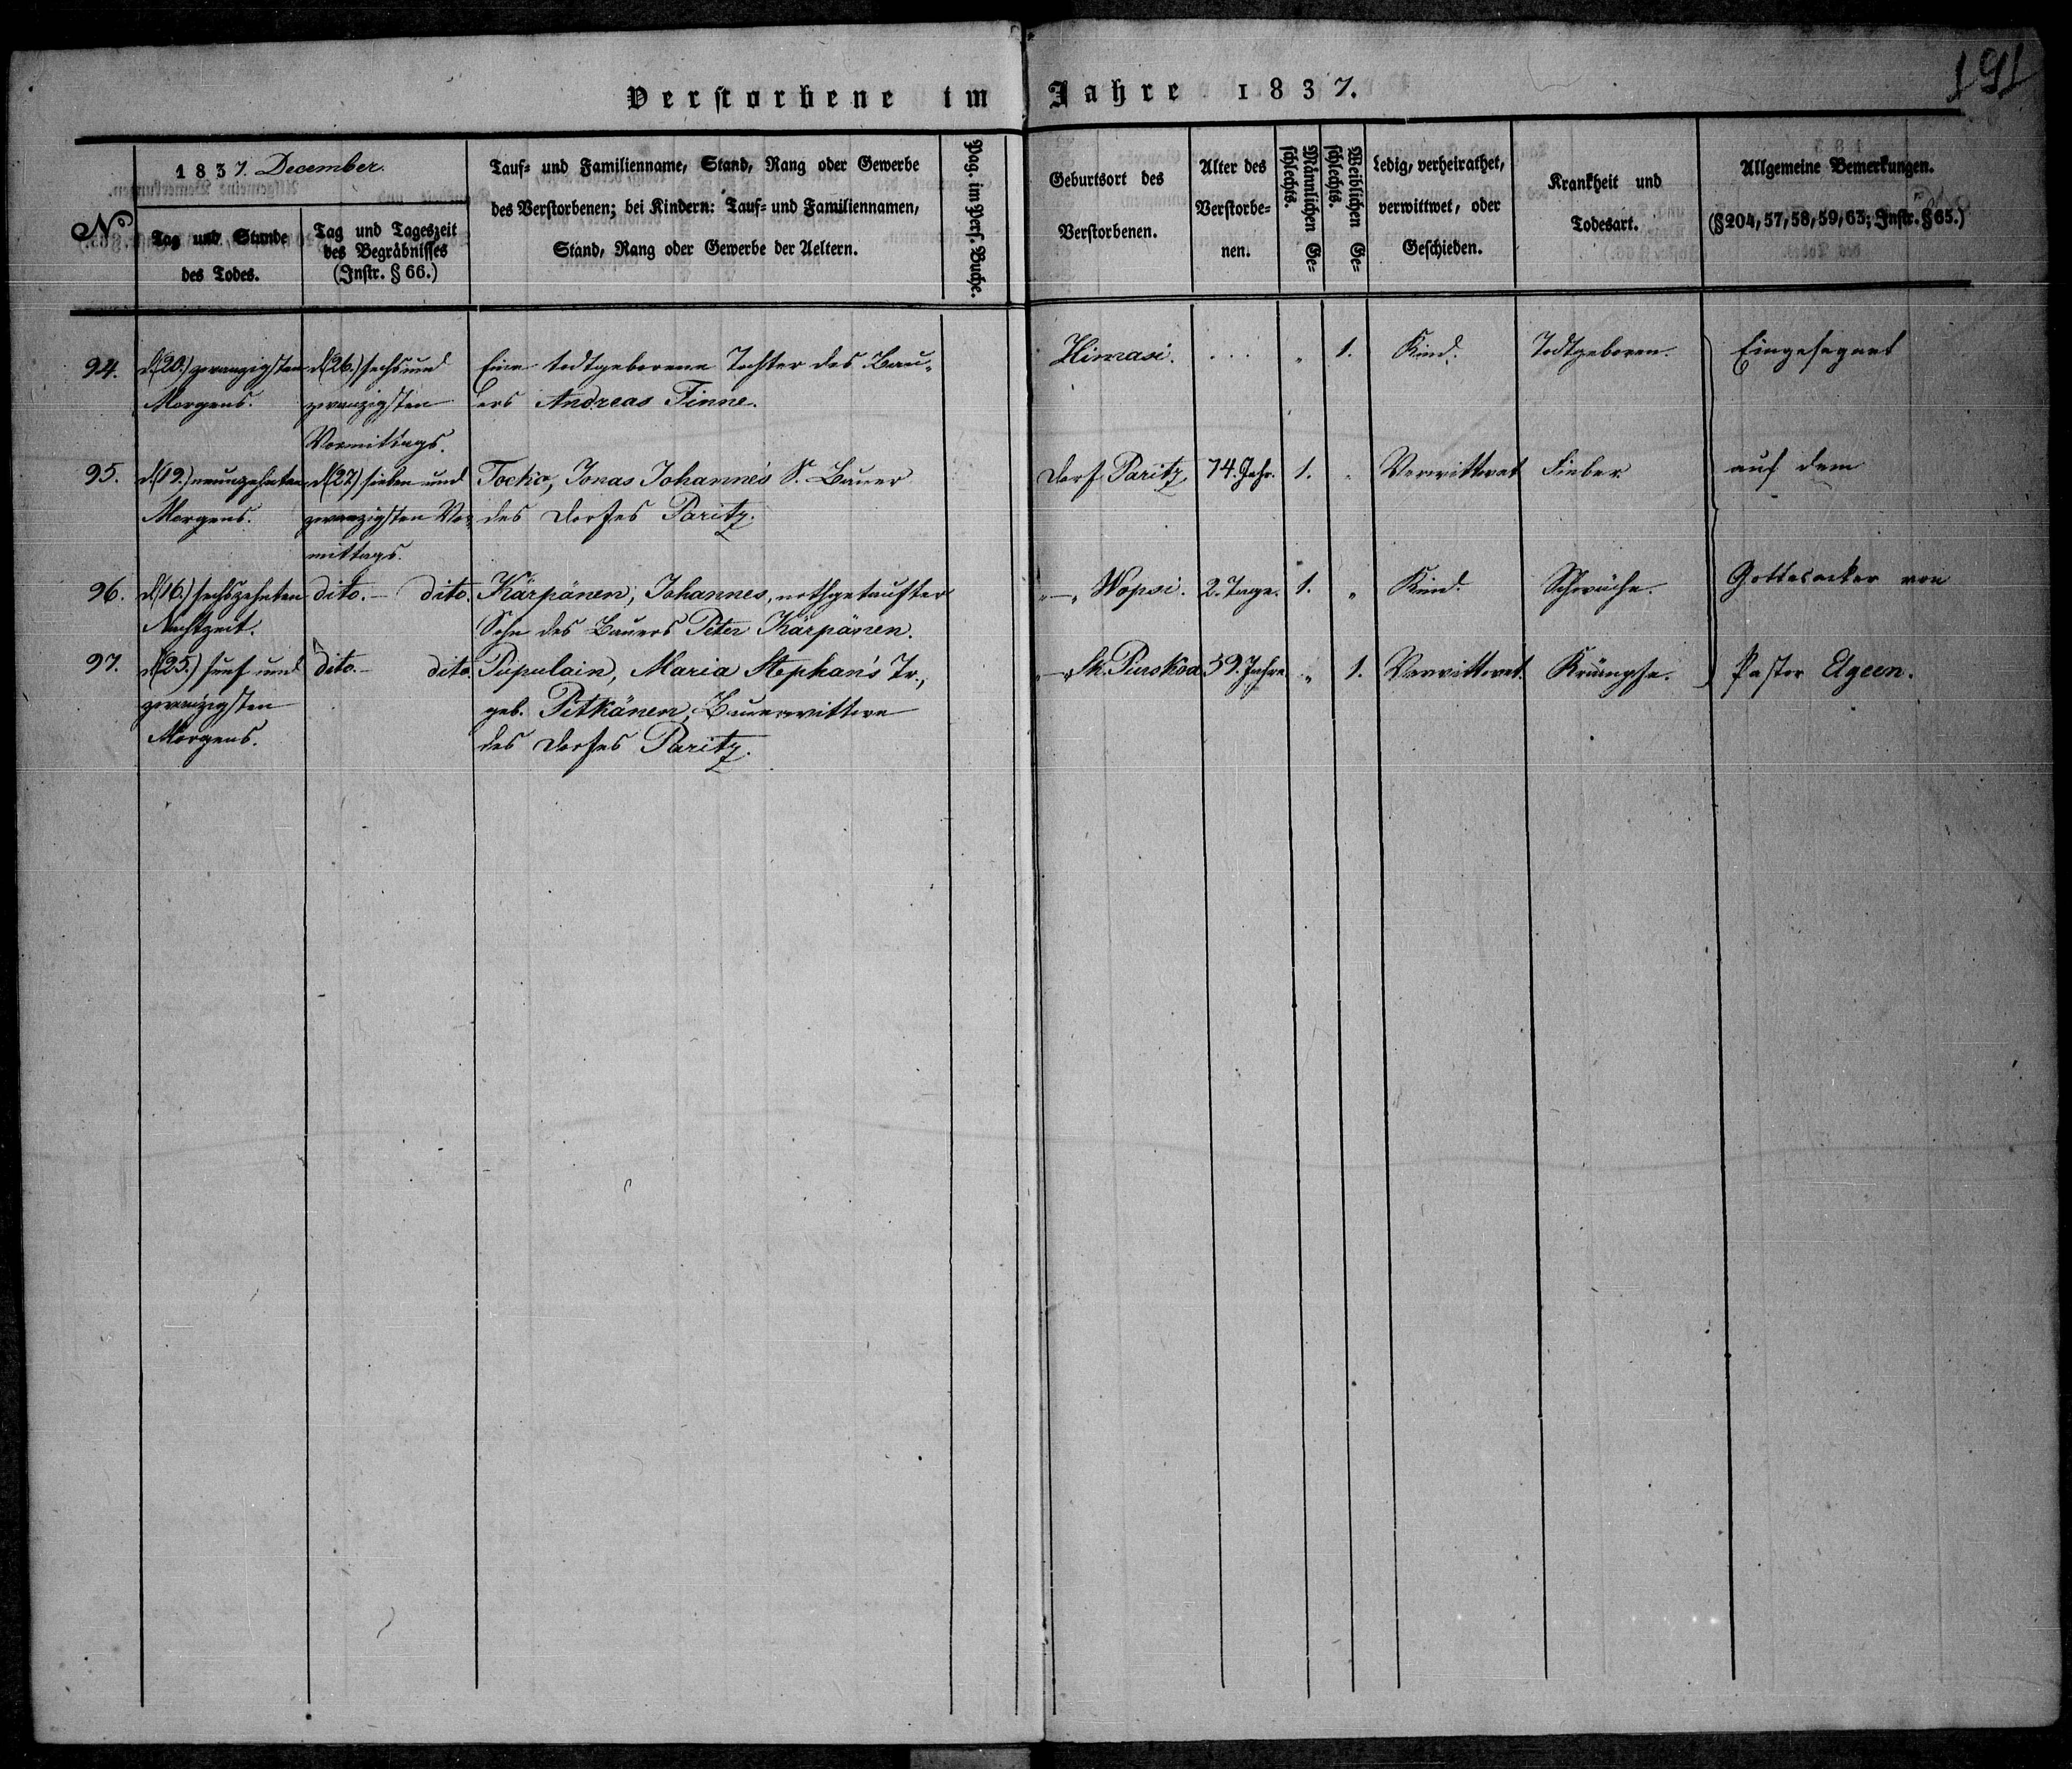 Verstorbene im Jahre 1837.
191
No
1837. December.
Tag und Stunde
des Todes.
Tag und Tageszeit
des Begräbnisses
(Instr. § 66.)
Tauf- und Familienname, Stand, Rang oder Gewerbe
des Verstorbenen; bei Kindern: Tauf- und Familiennamen,
Stand, Rang oder Gewerbe der Aeltern.
Pag. im Pers. Buche.
Geburtsort des
Verstorbenen.
Alter des
Verstorbe-
nen.
Männlichen Ge-
schlechts.
Weiblichen Ge-
schlechts.
Ledig, verheirathet,
verwittwet, oder
Geschieden.
Krankheit und
Todesart.
Allgemeine Bemerkungen.
(§ 204, 57, 58, 59, 63; Instr. § 65.)
94.
d. (20.) zwanzigsten
Morgens.
d. (26.) sechs und
zwanzigsten
Vormittags.
Eine todtgeborene Tochter des Bau-
ers Andreas Finne.
Himasi.
. . .
„
1.
Kind.
Todtgeboren.
Eingesegnet
95.
d. (19.) neunzehnten
Morgens.
d. (27.) sieben und
zwanzigsten Vor-
mittags.
Jonas Johannes S. Bauer
des Dorfes Paritz.
Dorf Paritz
74. Jahr.
1.
„
Verwittwet
Fieber.
auf dem
96.
d. (16.) sechszehnten
Nachtzeit.
dito. - dito.
Kärpänen, Johannes, nothgetaufter
Sohn des Bauers Peter Kärpänen.
„—„ Wopsi.
2. Tage.
1.
„
Kind.
Schwäche.
Gottesacker von
97.
d. (25.) fünf und
zwanzigsten
Morgens.
dito. - dito.
Pupulain, Maria Stephan's Tr.,
geb. Pitkänen, Bauerwittwe
des Dorfes Paritz.
59. Jahre
„
1.
Verwittwet.
Krämpfe.
Pastor Elgeen.